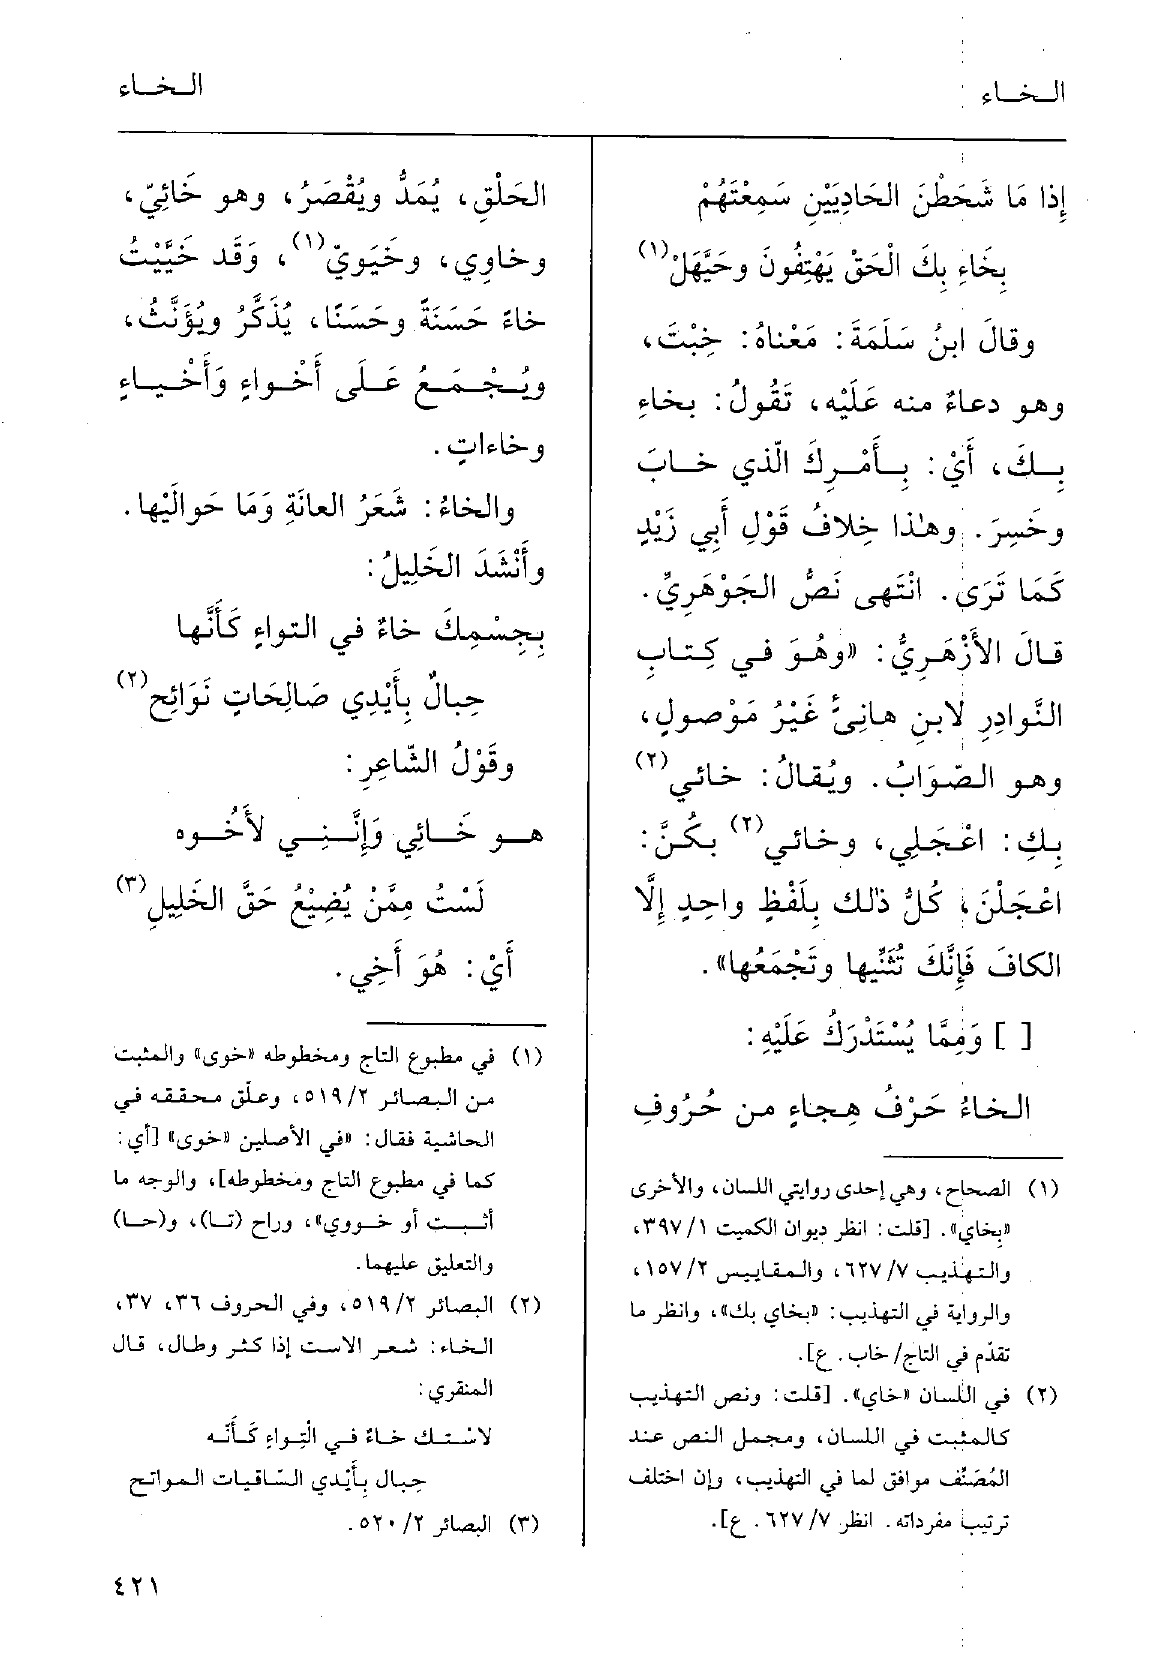 الـخـاء
الـخـاء
إِذا مَا شَحَطْنَ الحَادِيَيْنِ سَمِعْتَهُمْ
بِخَاءِ بِكَ الْحَقْ يَهْتِفُونَ وحَيَّهَلْ(١)
وقالَ ابنُ سَلَمَةَ: مَعْناهُ: خِبْتَ،
وهو دعاءٌ منه عَلَيْه، تَقُولُ: بخاءِ
بِـكَ، أَيْ: بِـأَمْـرِكَ الّذي خـابَ
وخَسِرَ. وهٰذا خِلافُ قَوْلِ أَبِي زَيْدٍ
كَمَا تَرَى. انْتَهى نَصُّ الجَوْهَرِيِّ.
قـالَ الأَزْهَـرِيُّ: «وهُوَ في كِتـابِ
النَّوادِرِ لابنِ هانِئٍ غَيْرُ مَوْصولٍ،
وهـو الصَّوَابُ. ويُقالُ: خائي(٢)
بِـكِ: اعْـجَـلِي، وخـائـي(٢) بكُنَّ:
اعْجَلْنَ، كُلُّ ذٰلك بِلَفْظٍ واحِدٍ إِلَّا
الكافَ فَإِنَّكَ تُثَنِّيها وتَجْمَعُها».
[ ] وَمِمَّا يُسْتَدْرَكُ عَلَيْهِ:
الخاءُ حَرْفُ هِجاءٍ من حُرُوفِ
(١) الصحاح، وهي إحدى روايتي اللسان، والأخرى
«بِخاي». [قلت: انظر ديوان الكميت ٣٩٧/١،
والتهذيب ٦٢٧/٧، والمقاييس ١٥٧/٢،
والرواية في التهذيب: «بخاي بك»، وانظر ما
تقدّم في التاج/ خاب. ع].
(٢) في اللسان «خاي». [قلت: ونص التهذيب
كالمثبت في اللسان، ومجمل النص عند
المُصَنِّف موافق لما في التهذيب، وإن اختلف
ترتيب مفرداته. انظر ٦٢٧/٧. ع].
الحَلْقِ، يُمَدُّ ويُقْصَرُ، وهو خَائِيّ،
وخاوِي، وخَيَوِيّ(١)، وَقَد خَيَّيْتُ
خاءً حَسَنَةً وحَسَنًا، يُذَكَّرُ ويُؤَنَّثُ،
ويُـجْـمَـعُ عَـلَى أَخْـواءٍ وَأَخْـيـاءٍ
وخاءاتٍ.
والخاءُ: شَعَرُ العانَةِ وَمَا حَوالَيْها.
وأَنْشَدَ الخَلِيلُ:
بِجِسْمِكَ خاءٌ في التواءٍ كَأَنَّها
حِبالٌ بِأَيْدِي صَالِحَاتٍ نَوَائِحِ(٢)
وقَوْلُ الشّاعِرِ:
هـو خَـائِي وَإِنَّـنِـي لأَخُـوه
لَسْتُ مِمَّنْ يُضِيْعُ حَقَّ الخَلِيلِ(٣)
أَيْ: هُوَ أَخِي.
(١) في مطبوع التاج ومخطوطه «خوى» والمثبت
من البصائر ٥١٩/٢، وعلّق محققه في
الحاشية فقال: «في الأصلين «خوى» [أي:
كما في مطبوع التاج ومخطوطه]، والوجه ما
أثبت أو خـووي»، وراج (تـا)، و(حـا)
والتعليق عليهما.
(٢) البصائر ٥١٩/٢، وفي الحروف ٣٦، ٣٧،
الخاء: شعر الاست إذا كثر وطال، قال
المنقري:
لاسْـتـك خـاءٌ فـي الْتِواءٍ كَـأَنّـه
حِبال بِأَيْدي السَّاقيات المواتح
(٣) البصائر ٥٢٠/٢.
٤٢١